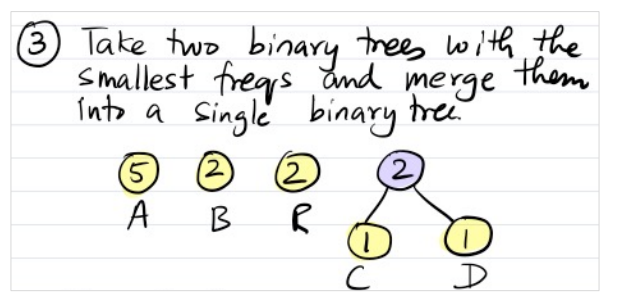 ③ Take two binary trees with the
smallest freqs and merge them
into a single binary tree.
5 2 2 2
A B R 1 1
C D